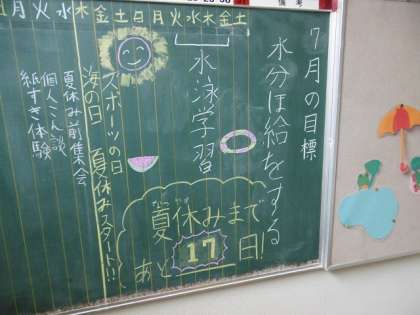 月火水木金土日月火水木金土
備考
7月の目標
水分ほ給をする
水泳学習
スポーツの日
海の日 夏休みスタート!!
夏休み前集会
個人こん談
紙すき体験
夏休みまで
あと17日!